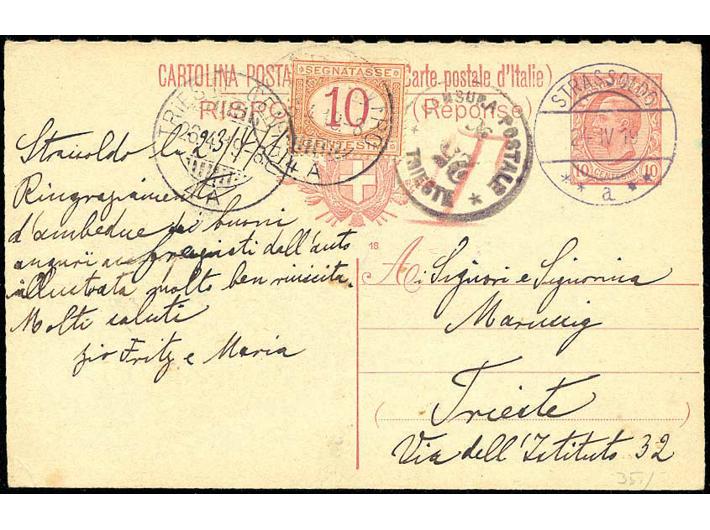 CARTOLINA POSTA
(Carte postale d'Italie)
RISP
(Réponse)
SEGNATASSE
10
STRASSOLDO
IV 19
* * a * *
10 CENTESIMI 10
TRIESTE
4 A
CENSURA POSTALE
* TRIESTE *
18
Strasoldo
Ringraziamenti
d'ambedue dei buoni
auguri
dell'auto
illustrata molto ben riuscita.
Molti saluti
zio Fritz e Maria
Ai Signori e Signorina
Marussig
Trieste
Via dell'Istituto 32
35/